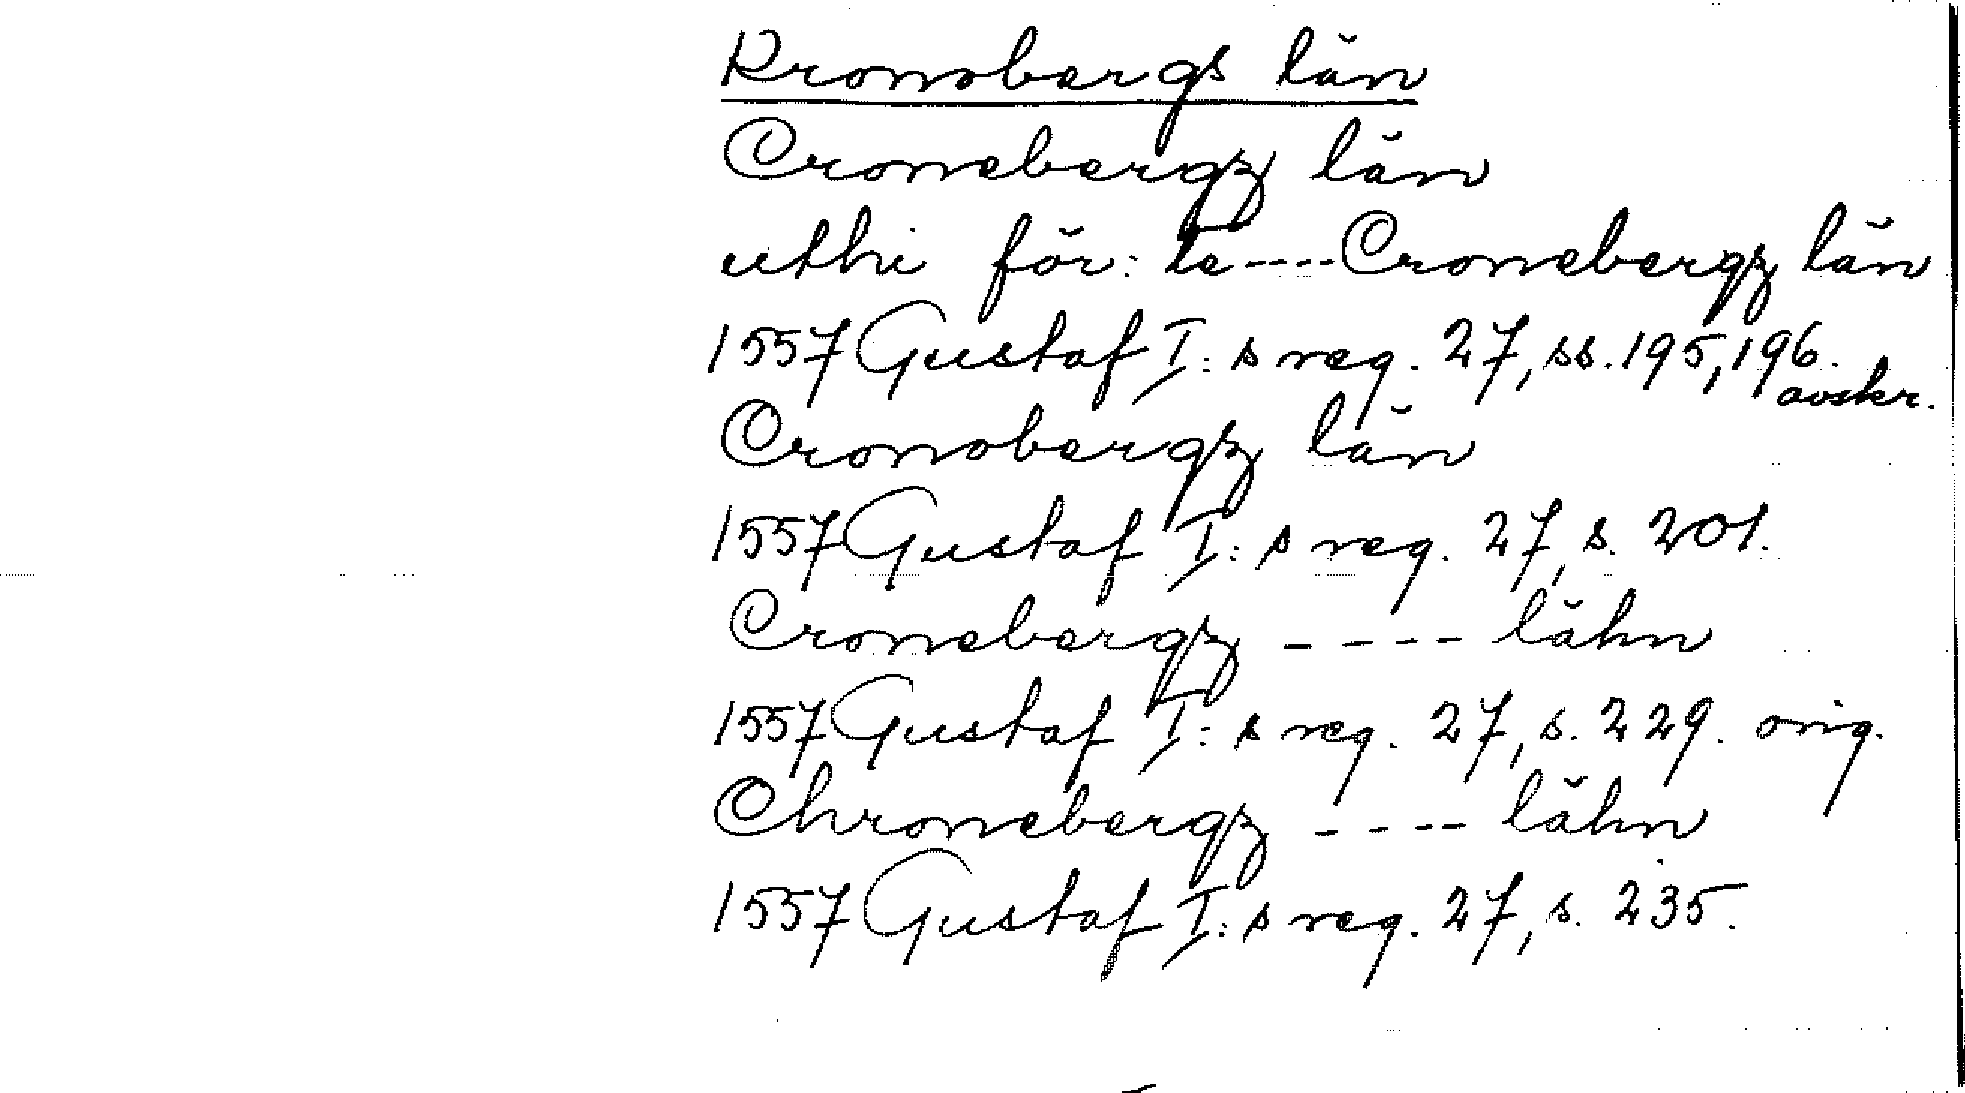 Kronobergs län
Cronebergz län
uthi för: te----Cronebergz län
1557 Gustaf I: s reg. 27, ss. 195, 196.
avskr.
Cronobergz län
1557 Gustaf I: s reg. 27, s. 201.
Cronebergz ---- lähn
1557 Gustaf I: s reg. 27, s. 229. orig.
Chronebergz ---- lähn
1557 Gustaf I: s reg. 27, s. 235.